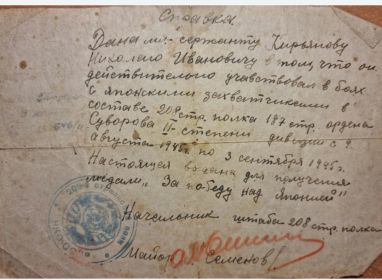 Справка
Дана мл-сержанту Кирьянову
Николаю Ивановичу в том, что он
действительно участвовал в боях
с японскими захватчиками в
составе 208 стр. полка 187 стр. ордена
Суворова II-степени дивизии с 9
августа 1945г по 3 сентября 1945г.
Настоящая выдана для получения
медали "За победу над Японией"
Начальник штаба 208 стр. полка
Майор Семенов